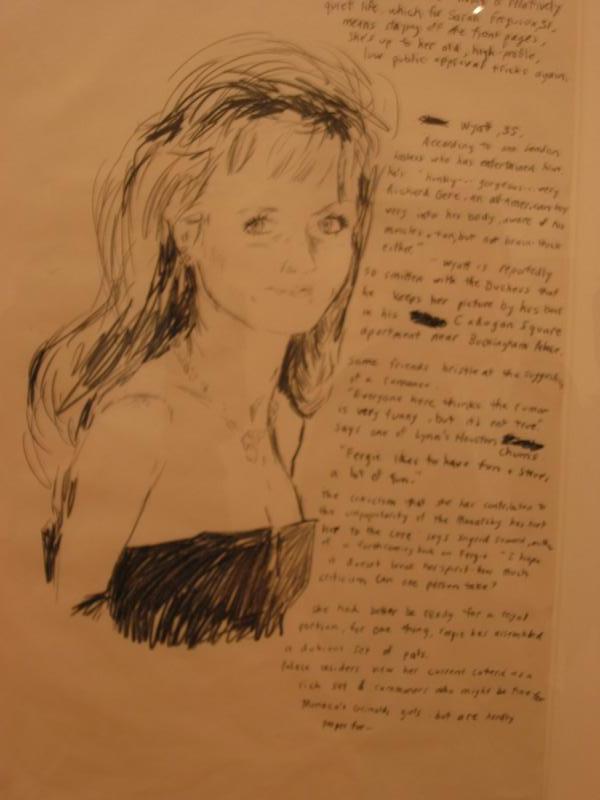 relatively
quiet life, which for Sarah Ferguson, 31,
means staying off the front pages,
she's up to her old, high-profile,
low public approval tricks again.
Wyatt, 35.
According to one London
hostess who has entertained him
he's "hunky... gorgeous... very
Richard Gere, an all-American boy
very into his body, aware of his
muscles + tan, but not brain-thick
either."
Wyatt is reportedly
so smitten with the Duchess that
he keeps her picture by his bed
in his Cadogan Square
apartment near Buckingham Palace.
Some friends bristle at the suggestion
of a romance.
"Everyone here thinks the rumor
is very funny, but it's not true"
says one of Lynn's Houston
chums.
"Fergie likes to have fun + Steve,
a lot of fun."
The criticism that she has contributed to
the unpopularity of the Monarchy has hurt
her to the core says Ingrid Seward, author
of a forthcoming book on Fergie "I hope
it doesn't break her spirit. How much
criticism can one person take?
She had better be ready for a royal
portion, for one thing, Fergie has assembled
a dubious set of pals.
Palace insiders view her current coterie as a
rich set of commoners who might be fine for
Monaco's Grimaldi girls but are hardly
proper for—